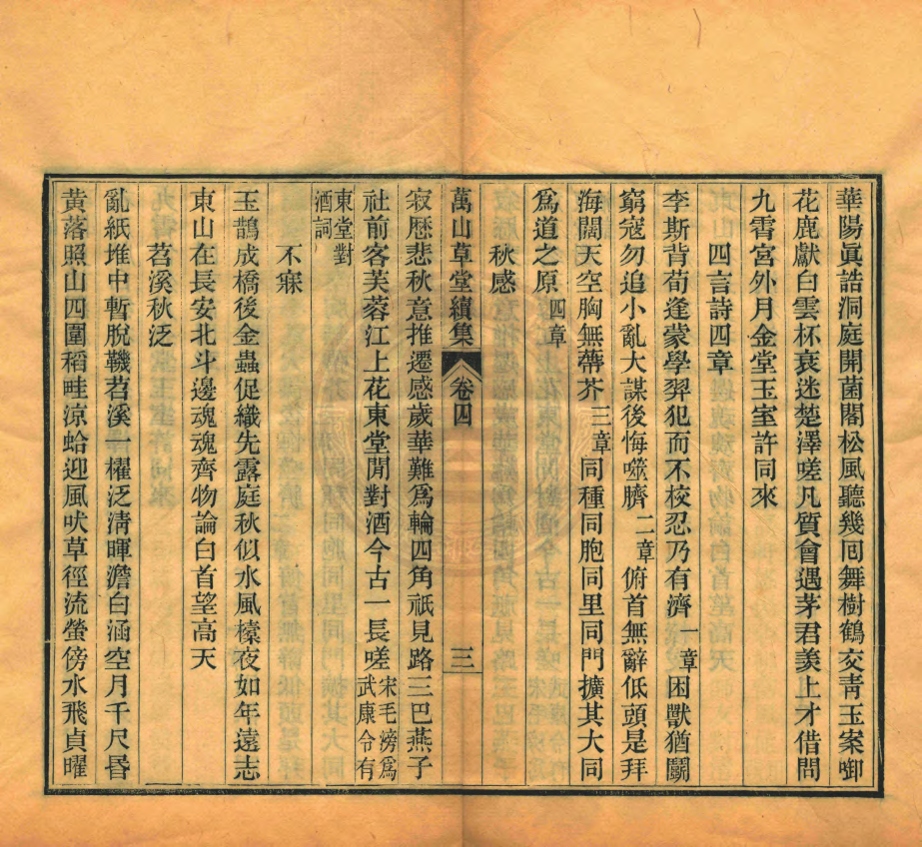 華陽眞誥洞庭開菌閣松風聽幾囘舞樹鶴交靑玉案啣
花鹿獻白雲杯衰迷楚澤嗟凡質會遇茅君羨上才借問
九霄宮外月金堂玉室許同來
四言詩四章
李斯背荀逢蒙學羿犯而不校忍乃有濟一章困獸猶鬬
窮寇勿追小亂大謀後悔噬臍二章俯首無辭低頭是拜
海闊天空胸無蔕芥三章同種同胞同里同門擴其大同
爲道之原四章
秋感
萬山草堂續集 卷四 三
寂歷悲秋意推遷感歲華難爲輪四角祇見路三巴燕子
社前客芙蓉江上花東堂閒對酒今古一長嗟宋毛滂爲武康令有
東堂對酒詞
不寐
玉鵲成橋後金蟲促織先露庭秋似水風榛夜如年遠志
東山在長安北斗邊魂魂齊物論白首望高天
苕溪秋泛
亂紙堆中暫脫鞿苕溪一櫂泛淸暉澹白涵空月千尺昏
黃落照山四圍稻畦涼蛤迎風吠草徑流螢傍水飛貞曜